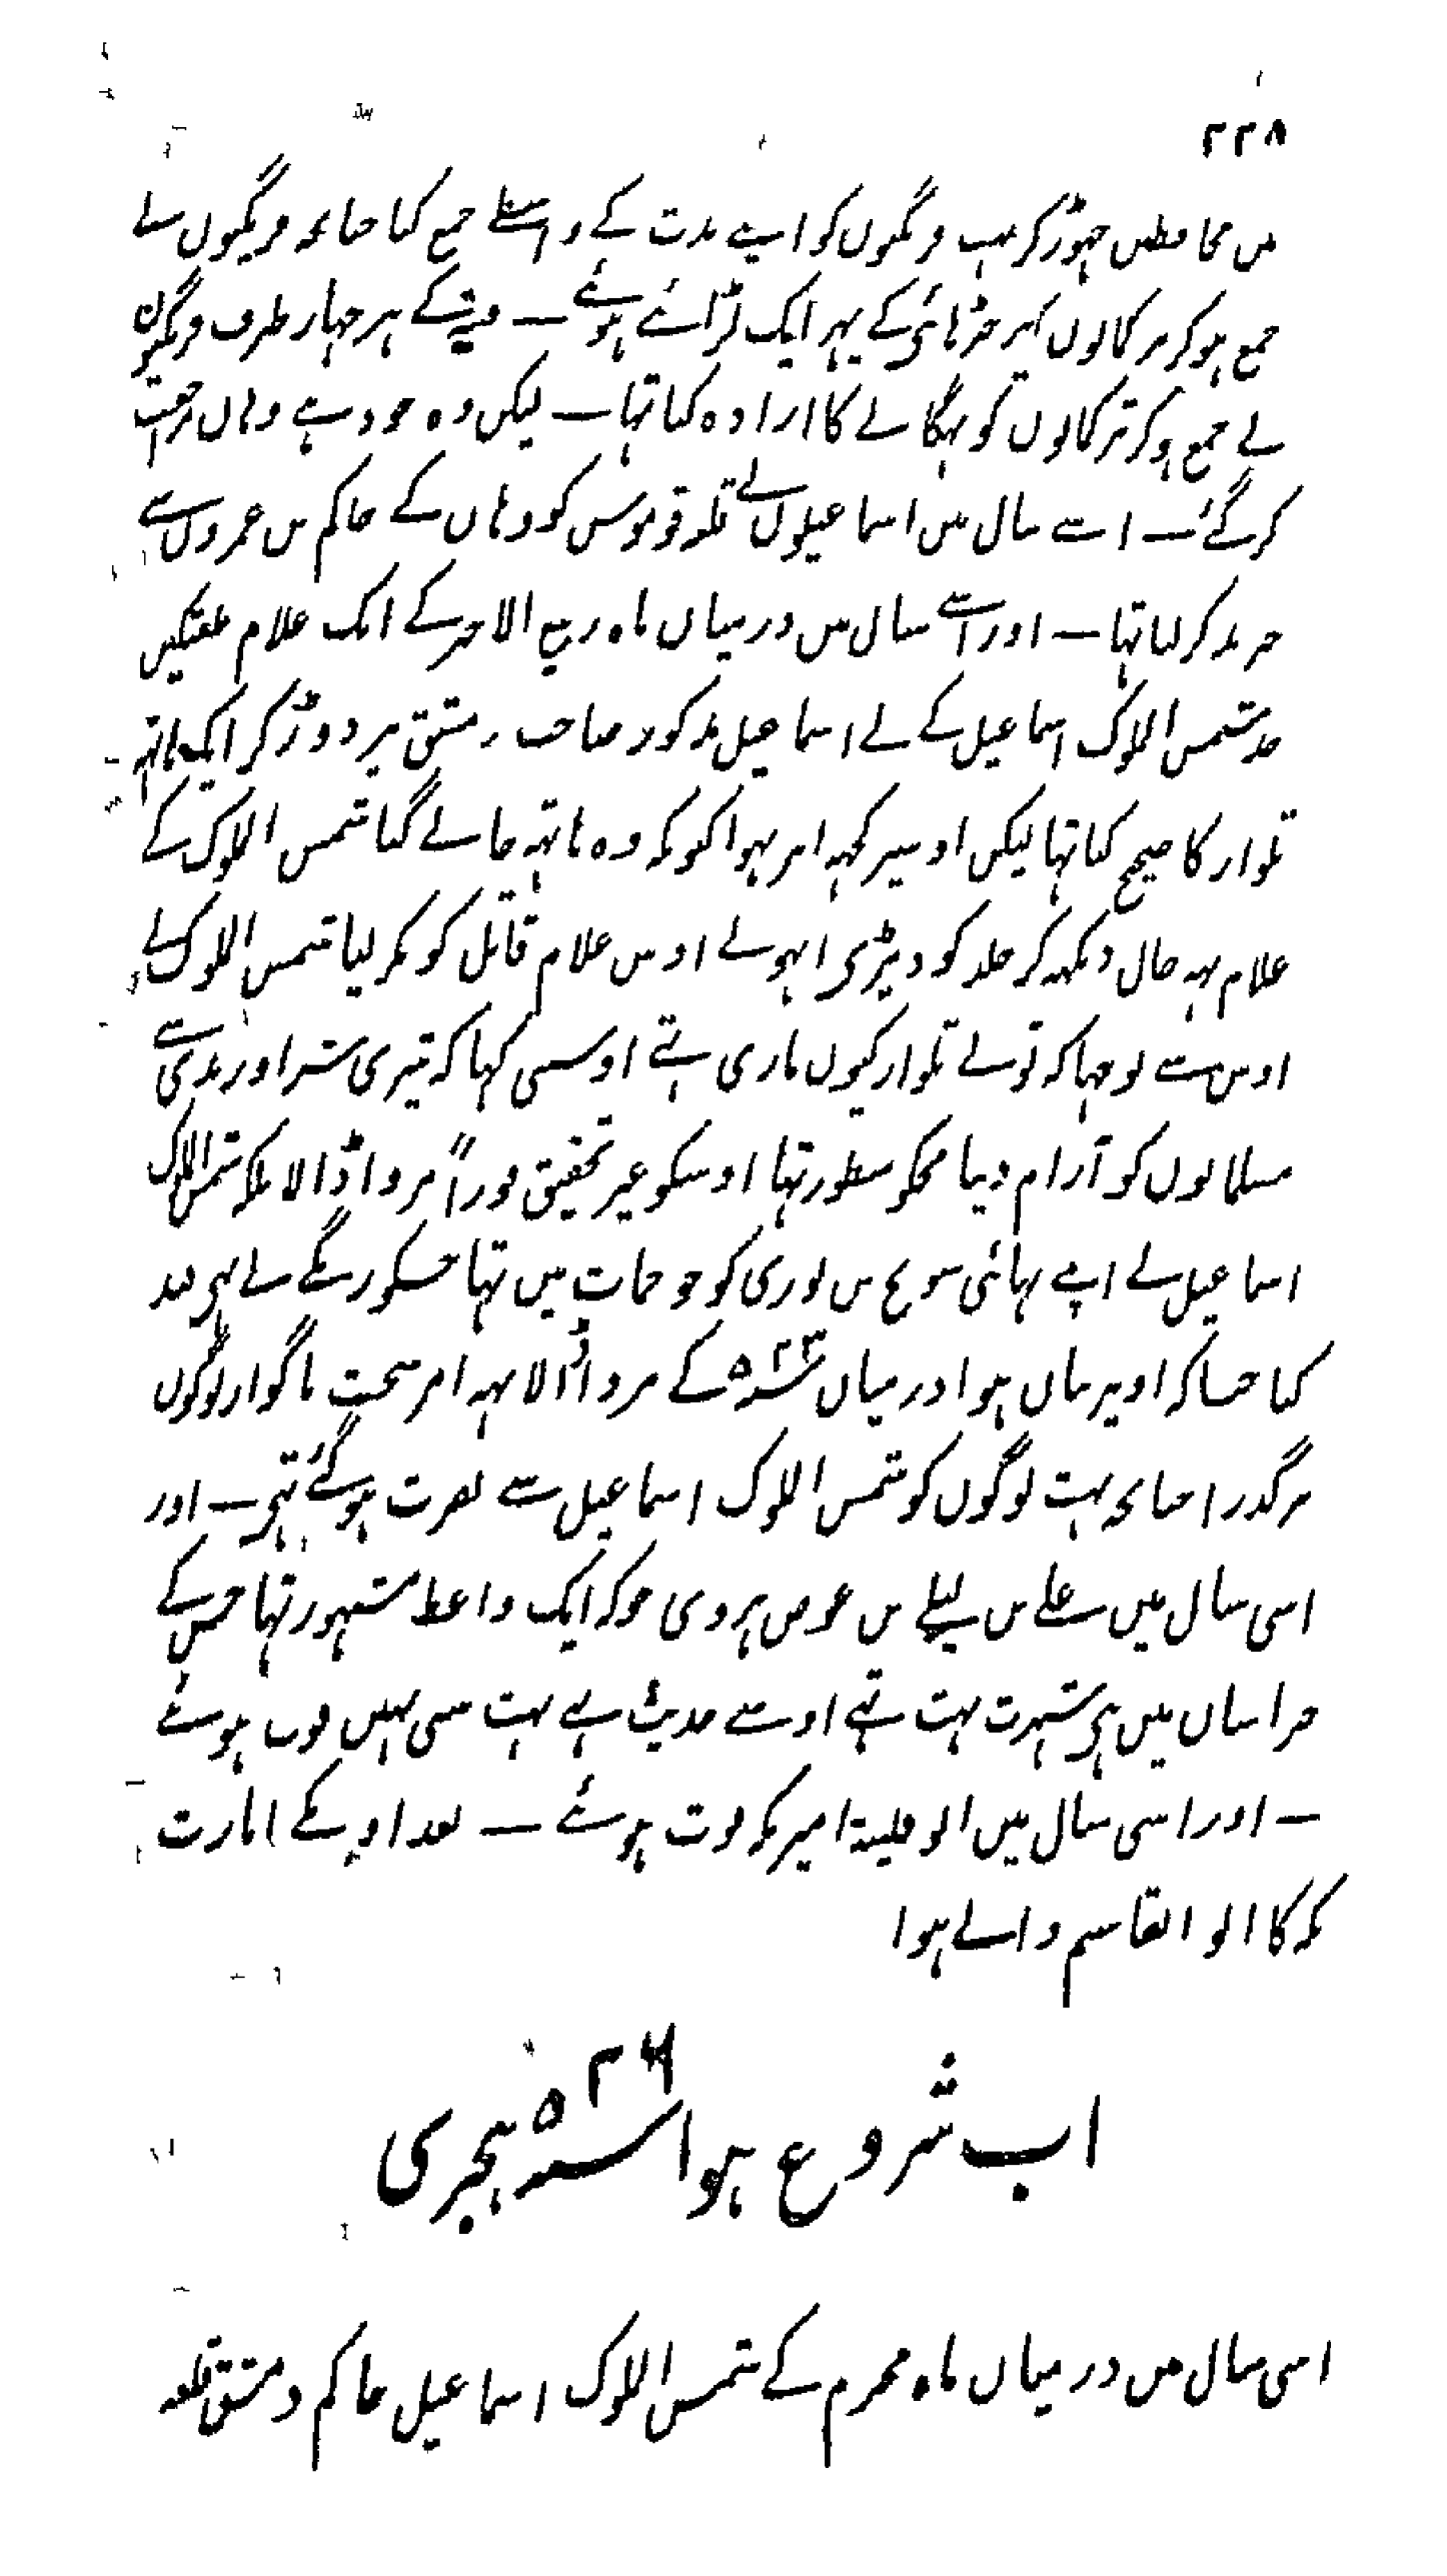 ۲۲۸
میں محافظین چھوڑ کر بہت فرنگیوں کو اپنے مدت کے واسطے جمع کیا چنانچہ فرنگیوں نے
جمع ہوکر ترکمانوں پر چڑہائی کے پہر ایک لڑائے ہوئے — جسکے ہر چہار طرف فرنگیوں
نے جمع ہوکر ترکمانوں کو بہگانے کا ارادہ کیا تہا — لیکن وہ خود ہے وہاں مراجعت
کر گئے — اسے سال میں اسماعیلیوں نے قلعہ قدموس کو وہاں کے حاکم بن عمرون سے
خرید کر لیا تہا — اور اسے سال میں درمیان ماہ ربیع الاخر کے ایک غلام طغتکین
جد شمس الملوک اسماعیل کے نے اسماعیل مذکور صاحب دمشق پر دوڑ کر ایک ہاتہہ
تلوار کا صحیح کیا تہا لیکن اوسپر کچہہ اثر نہوا کیونکہ وہ ہاتہہ خالے گیا شمس الملوک کے
غلام یہہ حال دیکہہ کر جلد کود پڑی انہونے اوس غلام قاتل کو پکڑ لیا شمس الملوک نے
اوس سے پوچہا کہ تونے تلوار کیوں ماری تہے اوسنی کہا کہ تیری شر اور بدی سے
مسلمانوں کو آرام دینا مجکو منظور تہا اوسکو بغیر تحقیق فوراً مرواڈالا بلکہ شمس الملوک
اسماعیل نے اپنے بہائی سونج بن بوری کو جو حمات میں تہا جسکو زنگے نے بہی قید
کیا جیسا کہ اوپر بیان ہوا درمیان ۵۲۳ سنہ کے مرواڈالا یہہ امر سخت ناگوار لوگوں
پر گذرا چنانچہ بہت لوگوں کو شمس الملوک اسماعیل سے نفرت ہوگئے تہی — اور
اسی سال میں علے بن یعلے بن عوض ہروی جو کہ ایک واعظ مشہور تہا جس کے
خراسان میں بہی شہرت بہت تہے اوسے حدیث بہے بہت سنی تہیں فوت ہوئے
— اور اسی سال میں ابو فلیتہ امیر مکہ فوت ہوئے — بعد اوسکے امارت
مکہ کا ابو القاسم والے ہوا
اب شروع ہوا سنہ ۵۲۶ ہجری
اسی سال میں درمیان ماہ محرم کے شمس الملوک اسماعیل حاکم دمشق قلعہ